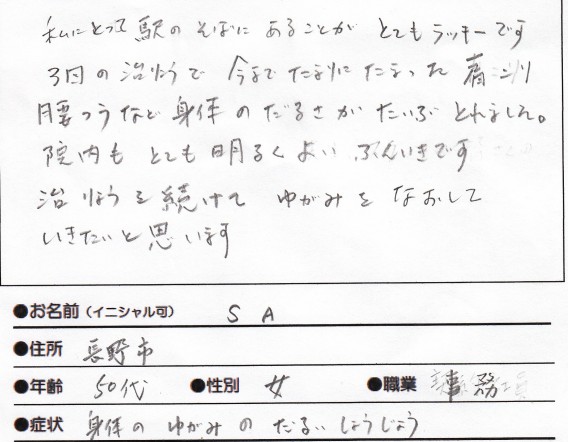 私にとって駅のそばにあることがとてもラッキーです
3回の治りょうで今までたまりにたまった肩こり
腰つうなど身体のだるさがたいぶとれました。
院内もとても明るくよいふんいきです
治りょうを続けてゆがみをなおして
いきたいと思います
●お名前(イニシャル可) S A
●住所 長野市
●年齢 50代 ●性別 女 ●職業 事務
●症状 身体のゆがみのだるいしょうじょう